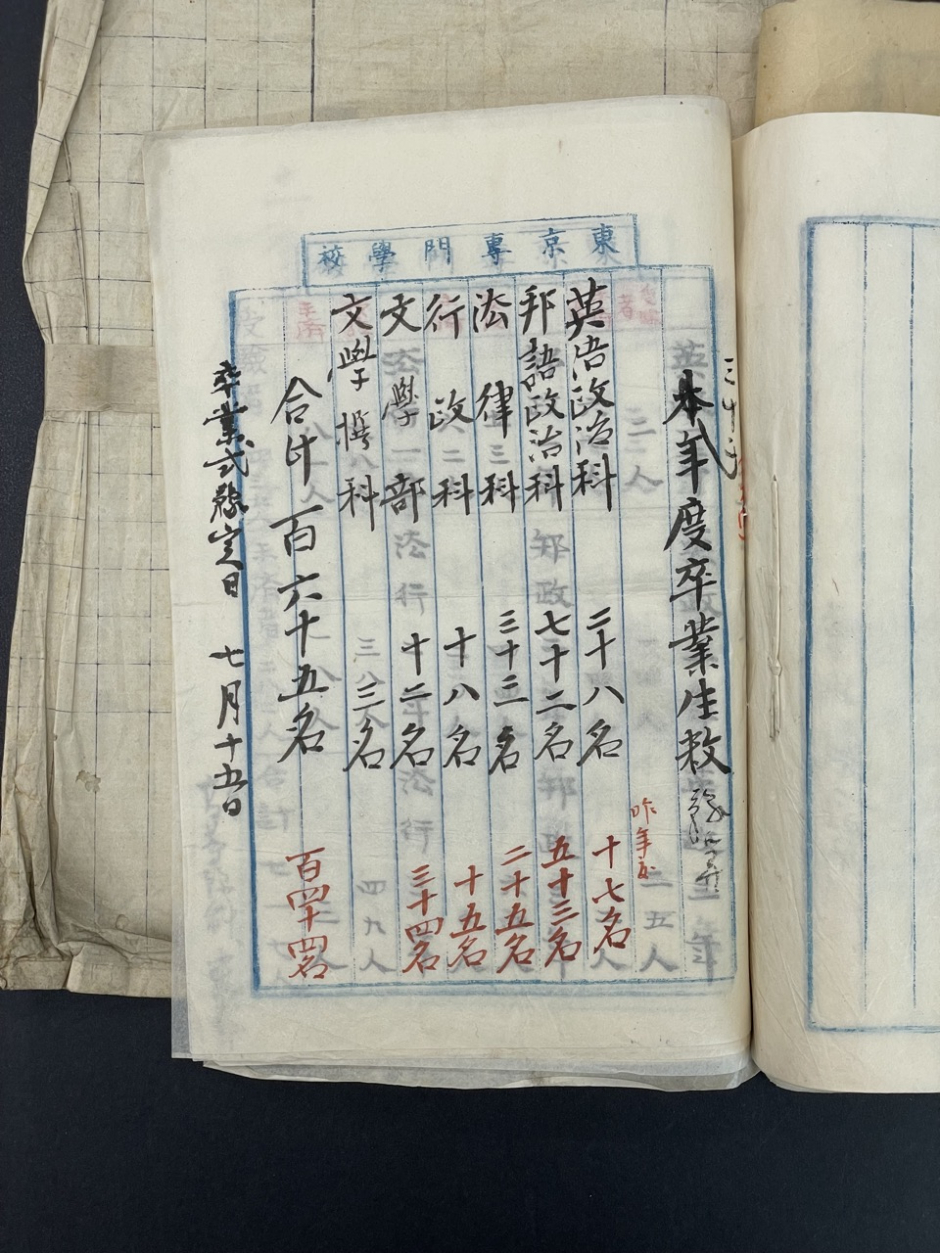 東京專門學校
本年度卒業生数
昨年度
英语政治科 二十八名 十七名
邦語政治科 七十二名 五十三名
法律科 三十二名 二十五名
行政科 十八名 十五名
文學部 十二名 三十四名
文學撰科 三名
合計 百六十五名 百四十四名
卒業式豫定日 七月十五日